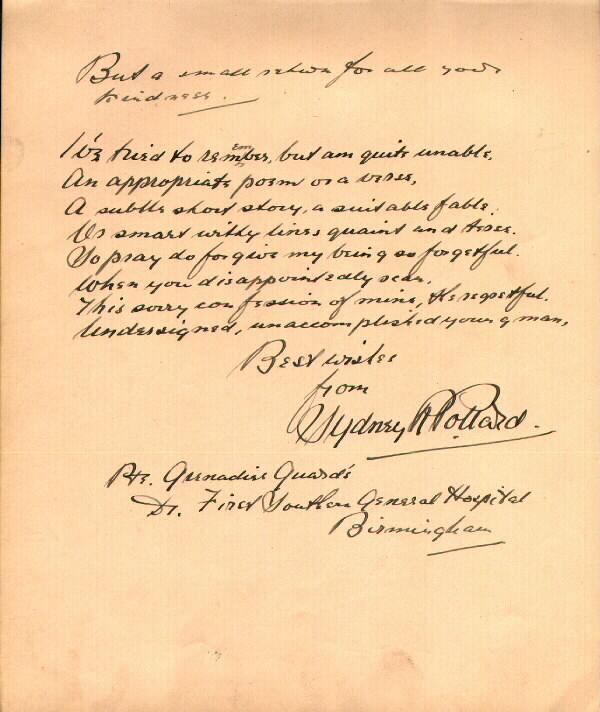 But a small return for all your
kindness.
I've tried to remember, but am quite unable,
An appropriate poem or a verse,
A subtle short story, a suitable fable.
Or smart witty lines quaint and terse.
So pray do forgive my being so forgetful.
When you disappointedly scan,
This sorry confession of mine, the regretful.
Undersigned, unaccomplished young man,
Best wishes
from
Sydney R Pollard.
Pte. Grenadier Guards
Dr. First Southern General Hospital
Birmingham